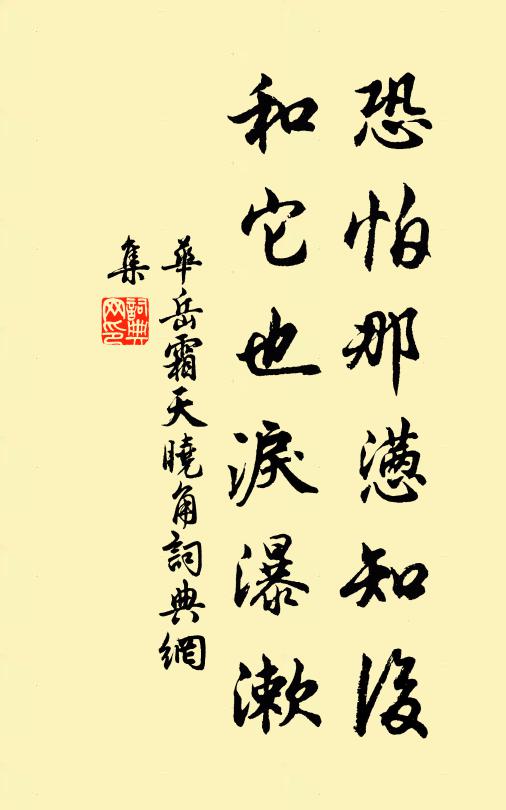 恐怕那懑知後
和它也淚瀑漱
華岳霜天曉角詞典網
集
詞典網印